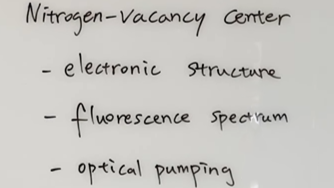 Nitrogen-Vacancy Center
- electronic structure
- fluorescence spectrum
- optical pumping